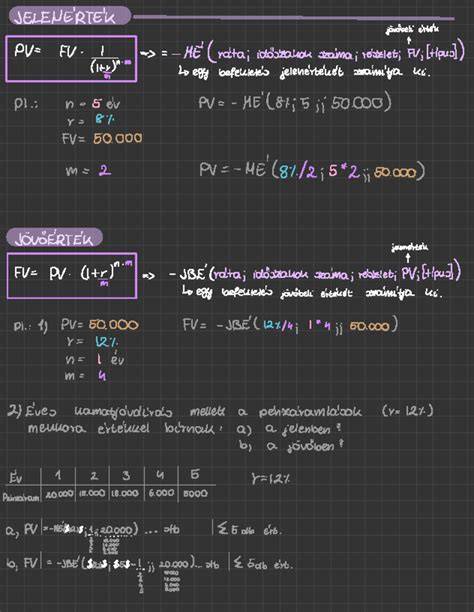 JELENÉRTÉK
jövőbeli érték
PV= FV · 1/(1+r)^n·m m => = -MÉ (ráta; időszakok száma; részlet; FV; [típus])
↳ egy befektetés jelenértékét számítja ki.
pl.: n = 5 év PV = -MÉ (8%; 5 ;; 50.000)
r = 8%
FV = 50.000
m = 2 PV = -MÉ (8%/2 ; 5*2 ;; 50.000)
JÖVŐÉRTÉK
jelenérték
FV= PV · (1+r)^n·m m => -JBÉ (ráta; időszakok száma; részlet; PV; [típus])
↳ egy befektetés jövőbeli értékét számítja ki.
pl.: 1) PV = 50.000 FV = -JBÉ (12%/4; 1*4 ;; 50.000)
r = 12%
n = 1 év
m = 4
2) Éves kamatjóváírás mellett a pénzáramlások (r=12%)
mekkora értékkel bírnak: a) a jelenben?
b) a jövőben?
Év 1 2 3 4 5 r=12%
Pénzáram 20.000 18.000 6.000 5000
a, PV = 20.000) ... stb Σ 5 db ért.
b, FV = -JBÉ ( 20.000) ... stb Σ 5 db ért.